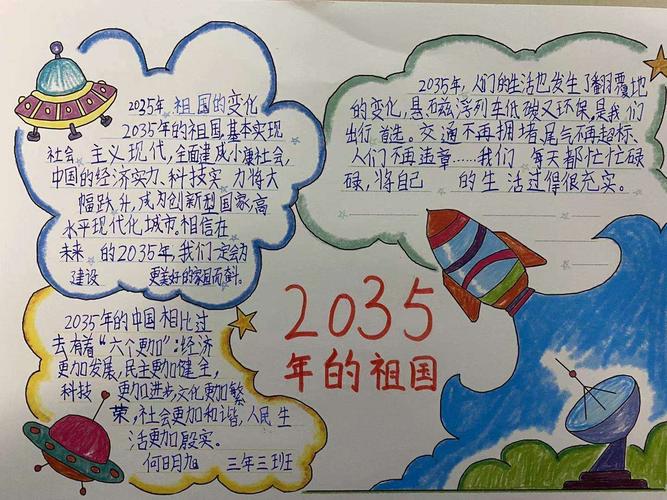 2035年祖国的变化
2035年的祖国,基本实现
社会主义现代,全面建成小康社会,
中国的经济实力、科技实力将大
幅跃升,成为创新型国家,高
水平现代化城市。相信在
未来的2035年,我们一定会为
建设更美好的家园而奋斗。
2035年,人们的生活也发生了翻覆地
的变化,悬磁浮列车低碳又环保,是我们
出行首选。交通不再拥堵,尾气不再超标、
人们不再违章……我们每天都忙忙碌
碌,将自己的生活过得很充实。
2035
年的祖国
2035年的中国相比过
去有着“六个更加”:经济
更加发展,民主更加健全,
科技更加进步,文化更加繁
荣,社会更加和谐,人民生
活更加殷实。
三年三班